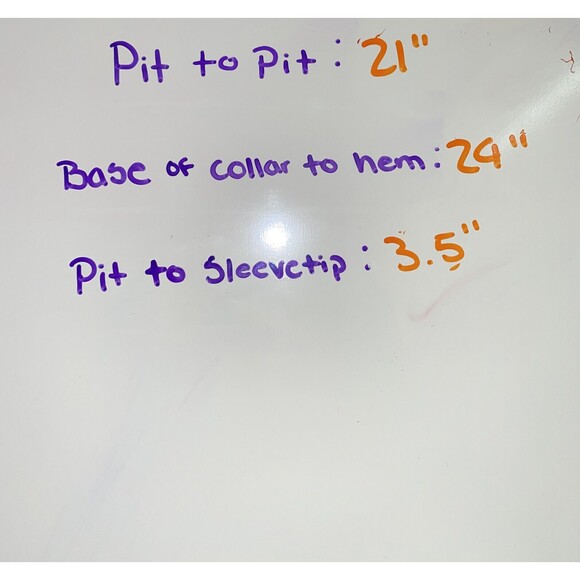 Pit to Pit: 21"
Base of collar to hem: 24"
Pit to Sleevetip: 3.5"